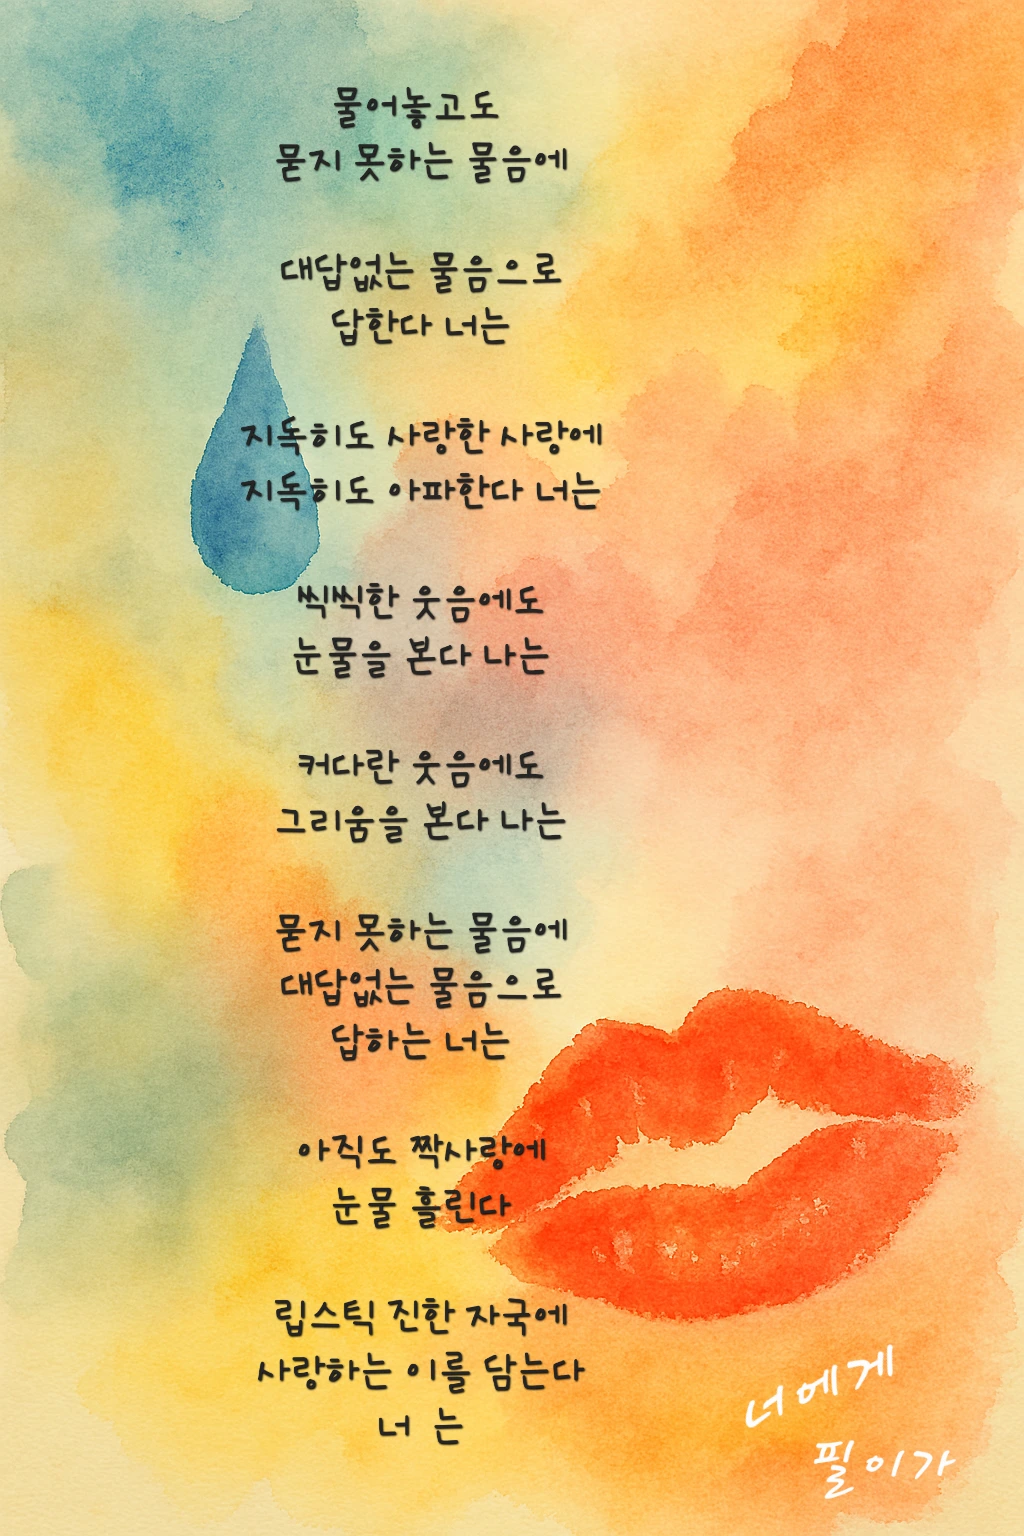 물어놓고도
묻지 못하는 물음에
대답없는 물음으로
답한다 너는
지독히도 사랑한 사랑에
지독히도 아파한다 너는
씩씩한 웃음에도
눈물을 본다 나는
커다란 웃음에도
그리움을 본다 나는
묻지 못하는 물음에
대답없는 물음으로
답하는 너는
아직도 짝사랑에
눈물 흘린다
립스틱 진한 자국에
사랑하는 이를 담는다
너 는
너에게
필이가